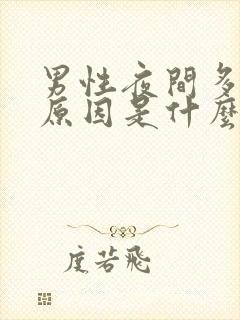 男性夜間多
原因是什麼
度若飛